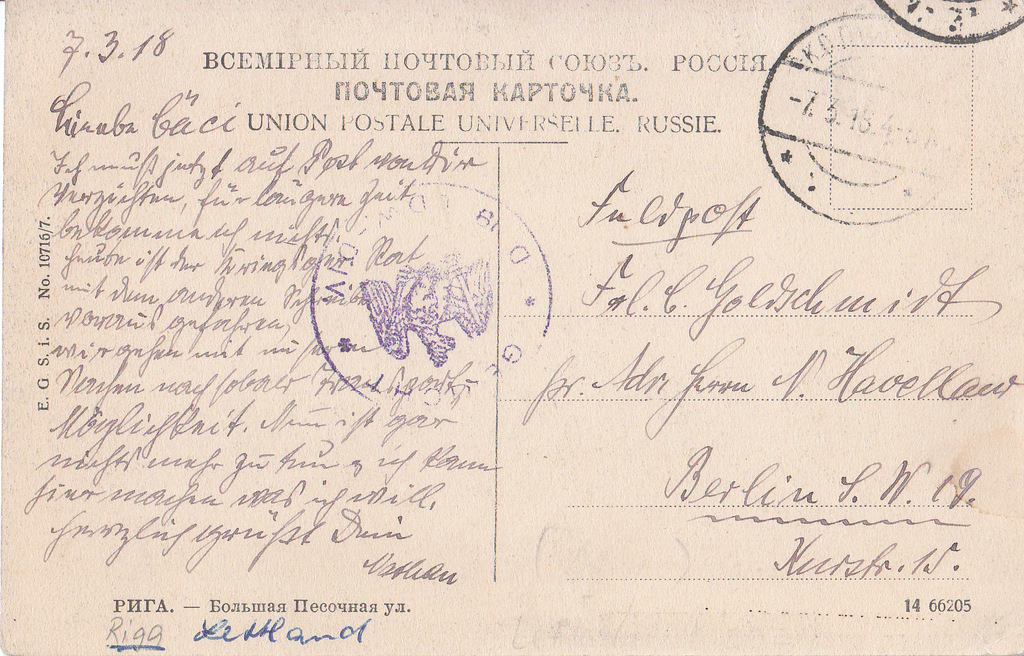 7.3.18
ВСЕМІРНЫЙ ПОЧТОВЫЙ СОЮЗЪ. РОССІЯ
ПОЧТОВАЯ КАРТОЧКА.
UNION POSTALE UNIVERSELLE. RUSSIE.
Liebe Cäci
Ich muß jetzt auf Post von Dir
verzichten, für längere Zeit
bekomme ich nichts
heute ist der Kriegsger. Rat
mit dem anderen Schreiber
voraus gefahren,
wir gehen mit unseren
Sachen nach sobald Transport-
Möglichkeit. Nun ist gar
nichts mehr zu tun u ich kann
hier machen was ich will.
Herzlich grüßt Dein
Nathan
E. G. S. i. S. No. 10716/7.
-7.3.18.4-5
Feldpost
Frl. C. Goldschmidt
pr. Adr. Herrn N. Havelland
Berlin S.W. 19.
Kurstr. 15.
РИГА. — Большая Песочная ул.
14 66205
Riga Lettland